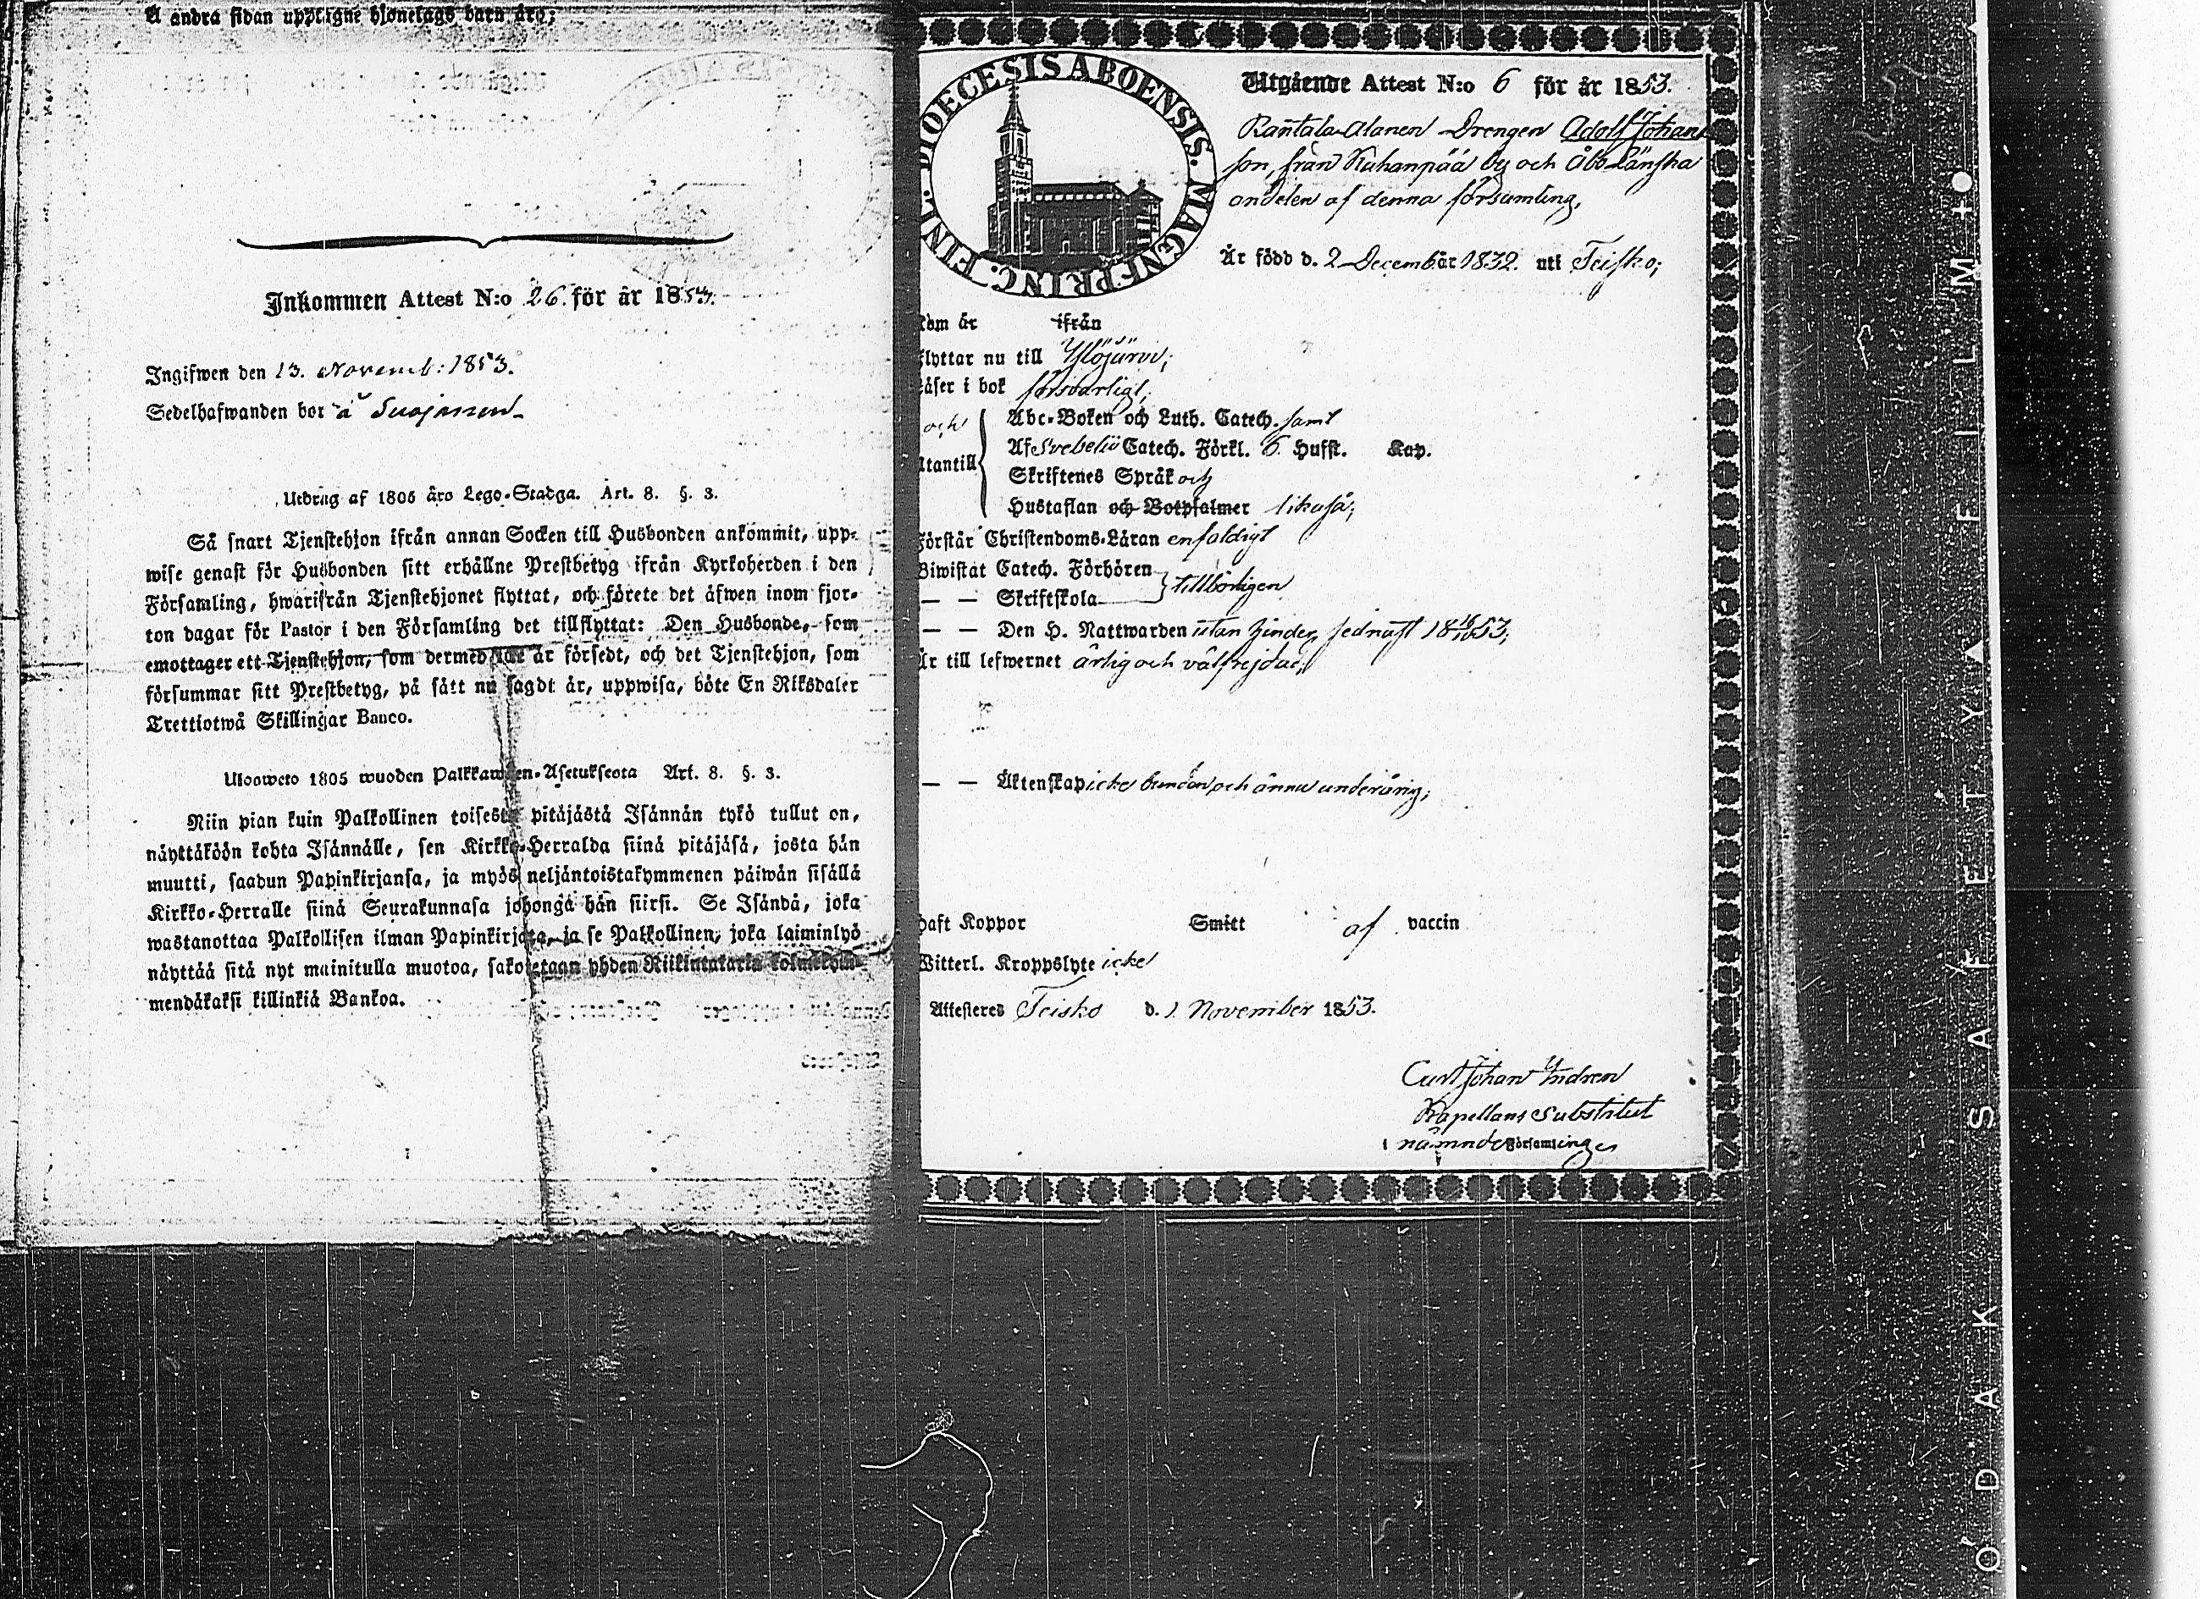 A andra sidan upptagne hjonelags barn äro;
Inkommen Attest N:o 26. för år 1853.
Ingifwen den 13. Novemb: 1853.
Sedelhafwanden bor å Suojanen
Utdrag af 1805 års Lego-Stadga. Art. 8. §. 3.
Så snart Tjenstehjon ifrån annan Socken till Husbonden ankommit, upp-
wise genast för Husbonden sitt erhållne Prestbetyg ifrån Kyrkoherden i den
Församling, hwarifrån Tjenstehjonet flyttat, och förete det äfwen inom fjor-
ton dagar för Pastor i den Församling det tillflyttat: Den Husbonde, som
emottager ett Tjenstehjon, som dermed icke är försedt, och det Tjenstehjon, som
försummar sitt Prestbetyg, på sätt nu sagdt är, uppwisa, böte En Riksdaler
Trettiotwå Skillingar Banco.
Ulosweto 1805 wuoden Palkkawäen-Asetuksesta Art. 8. §. 3.
Niin pian kuin Palkollinen toisesta pitäjästä Isännän tykö tullut on,
näyttäköön kohta Isännälle, sen Kirkko-Herralda siinä pitäjäsä, josta hän
muutti, saadun Papinkirjansa, ja myös neljäntoistakymmenen päiwän sisällä
Kirkko-Herralle siinä Seurakunnasa johonga hän siirsi. Se Isändä, joka
wastanottaa Palkollisen ilman Papinkirjata, ja se Palkollinen, joka laiminlyö
näyttää sitä nyt mainitulla muotoa, sakotetaan yhden Riikintalarin kolmekym-
mendäkaksi killinkiä Bankoa.
DIOECESIS ABOENSIS. MAGN. PRINC. FINL.
Utgående Attest N:o 6 för år 1853.
Rantala-Alanen Drengen Adolf Johans
son, från Kuhanpää by och Åbo Länska
andelen af denna församling,
Är född d. 2 December 1832. uti Teisko;
kom är ifrån
flyttar nu till Ylöjärvi;
Läser i bok försvarligt,
och
Abc-Boken och Luth. Catech. samt
Af Svebelii Catech. Förkl. 6. Hufst. Kap.
utantill
Skriftenes Språk och
Hustaflan och Botpsalmer likaså;
Förstår Christendoms-Läran enfaldigt
Biwistat Catech. Förhören
— — Skriftskola tillbörligen
— — Den H. Nattwarden utan hinder, sednast 18 53;
Är till lefwernet ärlig och välfrejdad;
— — Äktenskap icke bunden och ännu underårig;
haft Koppor Smitt af vaccin
Witterl. Kroppslyte icke
Attesteres Teisko d. 1 November 1853.
Curt Johan Indren
Kapellans Substitut
i nämnde Församling
KODAK SAFETY FILM